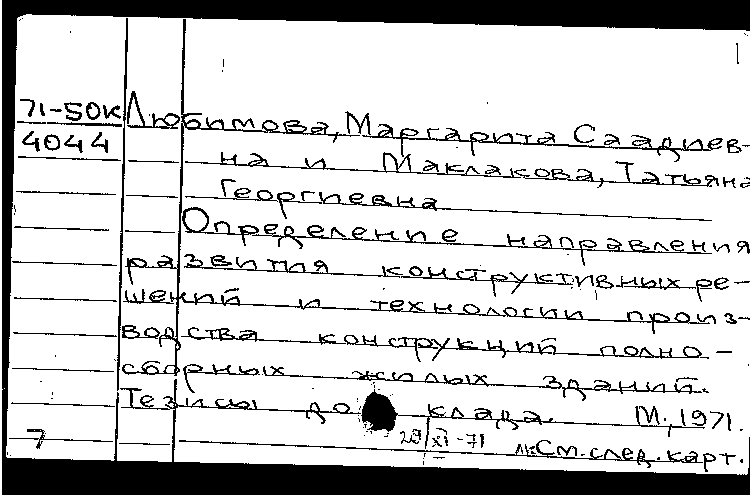 71-50К Любимова, Маргарита Саадиев-
4044 на и Маклакова, Татьяна
Георгиевна
Определение направления
развития конструктивных ре-
шений и технологии произ-
водства конструкций полно-
сборных жилых зданий.
Тезисы доклада. М., 1971.
7 29/XI-71 См. след. карт.